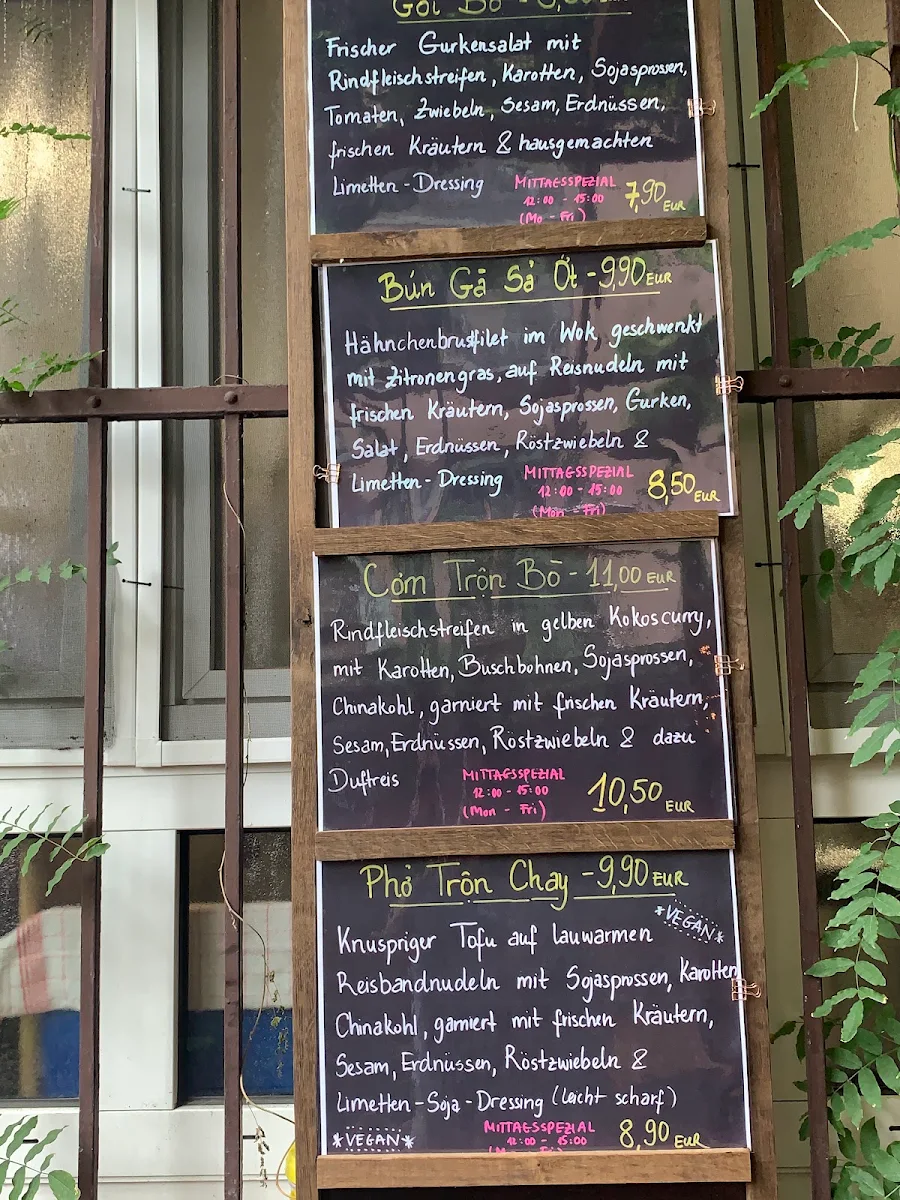 Gỏi Bò
Frischer Gurkensalat mit
Rindfleischstreifen, Karotten, Sojasprossen,
Tomaten, Zwiebeln, Sesam, Erdnüssen,
frischen Kräutern & hausgemachten
Limetten-Dressing
MITTAGSSPEZIAL
12:00 - 15:00
(Mo - Fri)
7,90 EUR
Bún Gà Sả Ớt - 9,90 EUR
Hähnchenbrustfilet im Wok geschwenkt
mit Zitronengras, auf Reisnudeln mit
frischen Kräutern, Sojasprossen, Gurken,
Salat, Erdnüssen, Röstzwiebeln &
Limetten-Dressing
MITTAGSSPEZIAL
12:00 - 15:00
(Mon - Fri)
8,50 EUR
Cơm Trộn Bò - 11,00 EUR
Rindfleischstreifen in gelben Kokoscurry,
mit Karotten, Buschbohnen, Sojasprossen,
Chinakohl, garniert mit frischen Kräutern,
Sesam, Erdnüssen, Röstzwiebeln & dazu
Duftreis
MITTAGSSPEZIAL
12:00 - 15:00
(Mon - Fri)
10,50 EUR
Phở Trộn Chay - 9,90 EUR
*VEGAN*
Knuspriger Tofu auf lauwarmen
Reisbandnudeln mit Sojasprossen, Karotten
Chinakohl, garniert mit frischen Kräutern,
Sesam, Erdnüssen, Röstzwiebeln &
Limetten-Soja-Dressing (leicht scharf)
*VEGAN*
MITTAGSSPEZIAL
12:00 - 15:00
8,90 EUR